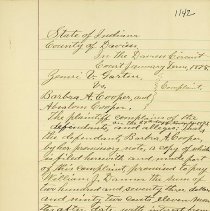 1142
State of Indiana
County of Daviess
In the Daviess Circuit
Court January Term, 1878
James C. Garten
vs.
Complaint.
Barbra A. Cooper, and
Cooper.
The plaintiff complains of the
defendants, and alleges, that
the defendant Barbra A. Cooper,
by her promissory note, a copy of which
is filed herewith and made part
of this complaint, promised to pay
William J. the sum of
two hundred and seventy three dollars
and ninety two cents, eleven months
after date, with interest